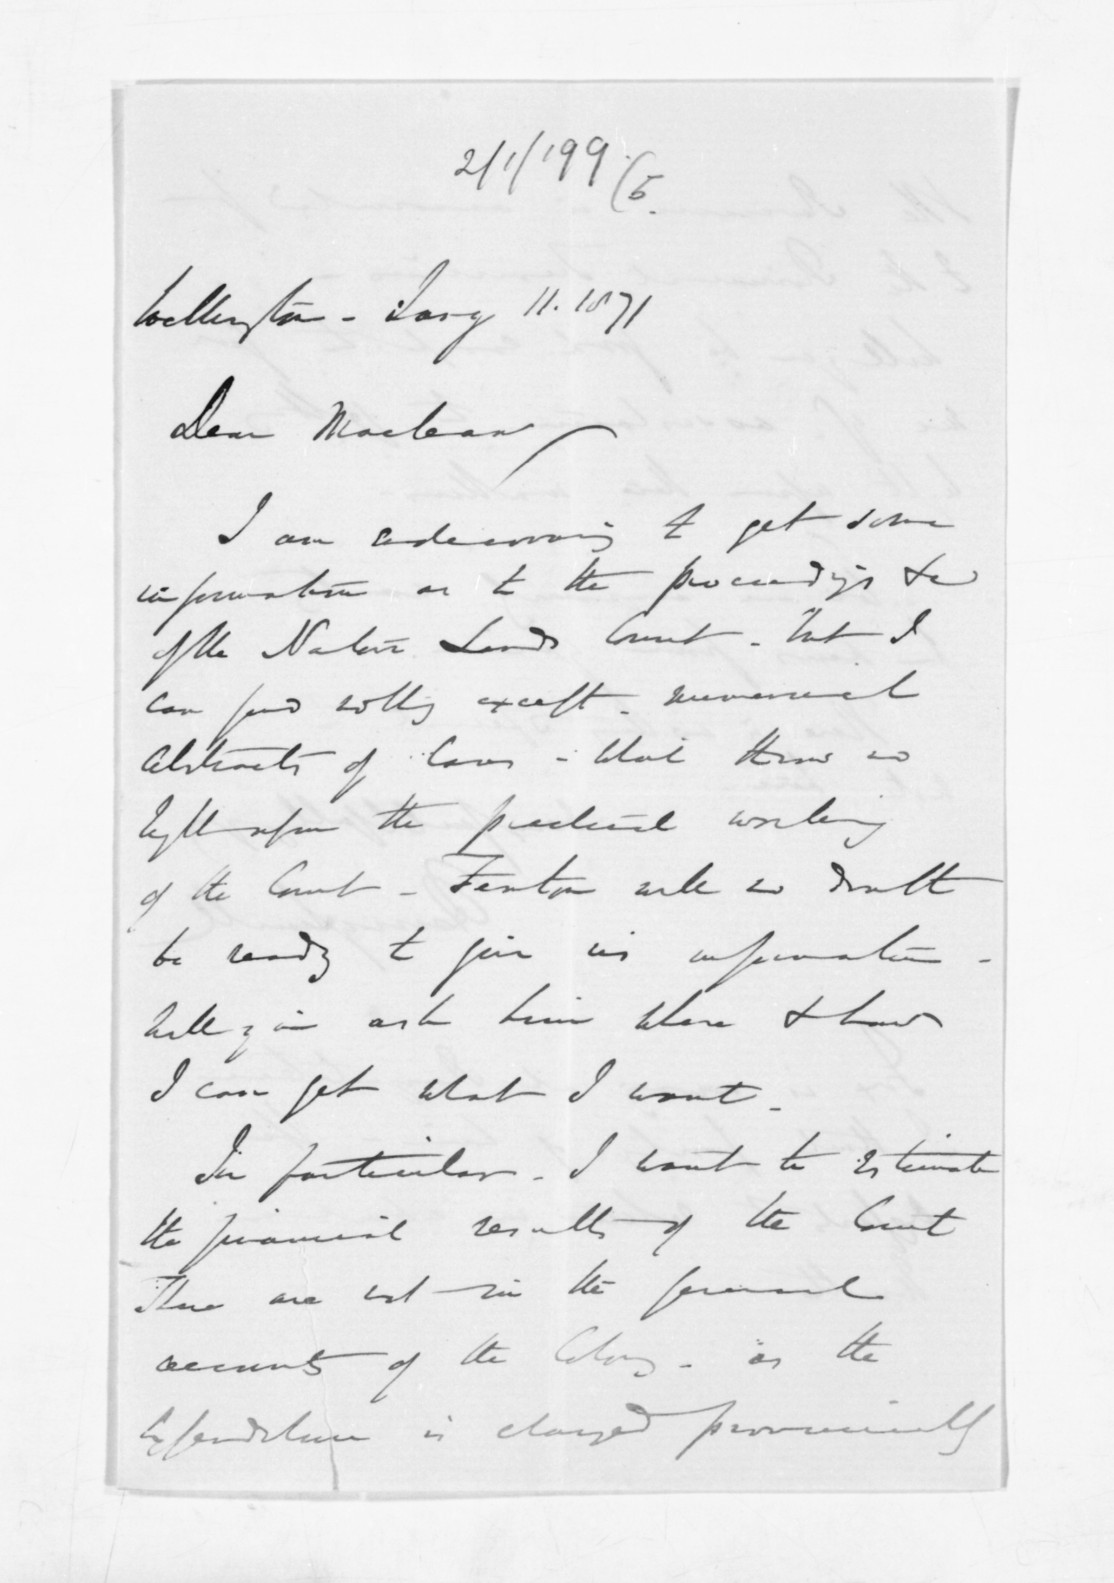 2/1/199 (5.
Wellington - Jany 11. 1871
Dear Maclean
I am endeavouring to get some
information as to the proceedings &c
of the Native Lands Court - but I
can find nothing except numerical
abstracts of cases - which throw no
light upon the practical working
of the Court - Fenton will no doubt
be ready to give us information -
Will you ask him where & how
I can get what I want.
In particular - I want to estimate
the financial results of the Court
These are not in the general
accounts of the Colony - as the
Expenditure is charged provincially